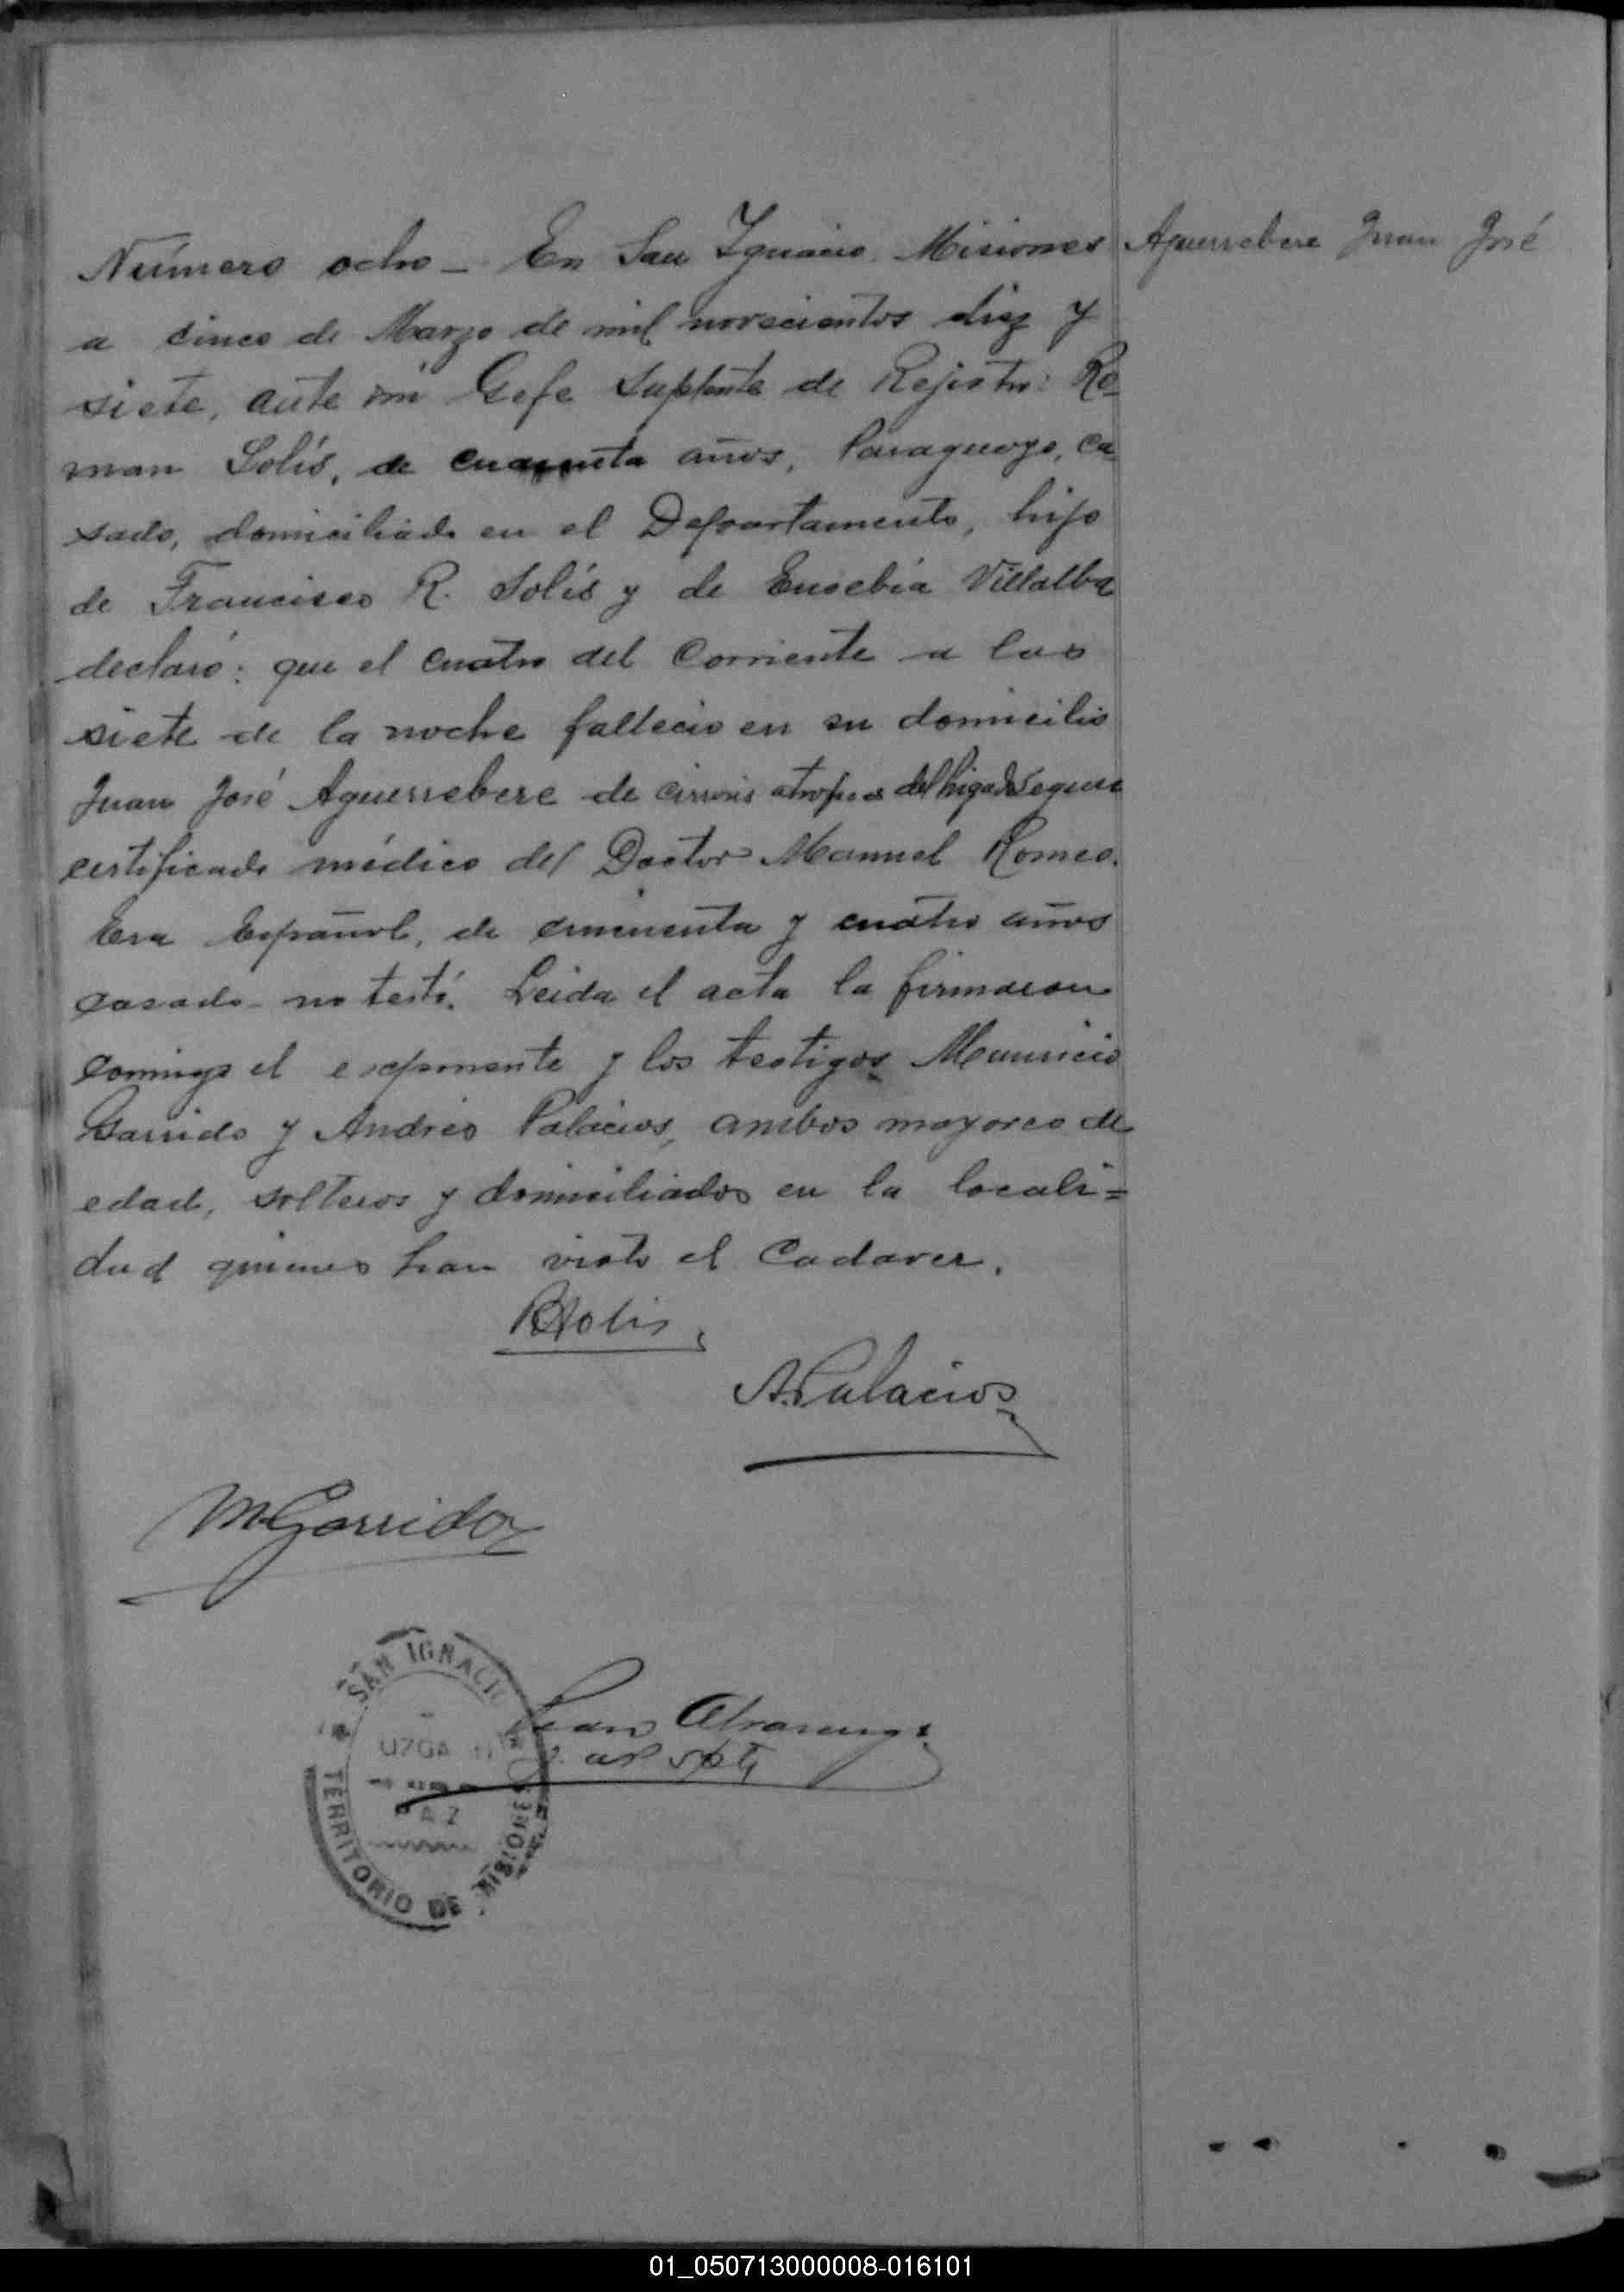 Número ocho - En San Ygnacio Misiones
Aguerrebere Juan José
a cinco de Marzo de mil novecientos diez y
siete, ante mi Gefe Suplente de Rejistro: Ro-
man Solís, de cuarenta años, Paraguayo, ca
sado, domiciliado en el Departamento, hijo
de Francisco R. Solís y de Eusebia Villalba
declaró: que el cuatro del Corriente a las
siete de la noche fallecio en su domicilio
Juan José Aguerrebere de cirrosis del higado segun
certificado médico del Doctor Manuel Romeo.
Era Español, de cincuenta y cuatro años
casado - no testó. Leida el acta la firmaron
conmigo el exponente y los testigos Mauricio
Garrido y Andrés Palacios, ambos mayores de
edad, solteros y domiciliados en la locali=
dad quienes han visto el Cadaver.
RSolis
A. Palacios
M Garrido
SAN IGNACIO
UZGA
PAZ
TERRITORIO DE MISIONES
Juan
01_050713000008-016101